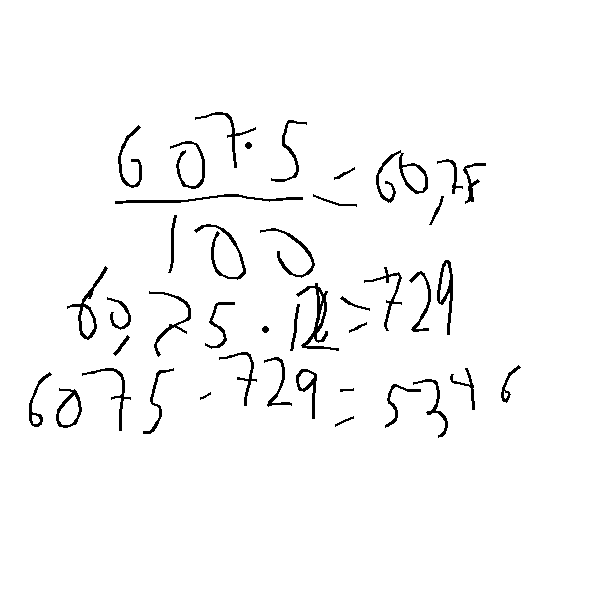 607.5/100 = 60,75
60,75 . 12 = 729
6075 - 729 = 5346